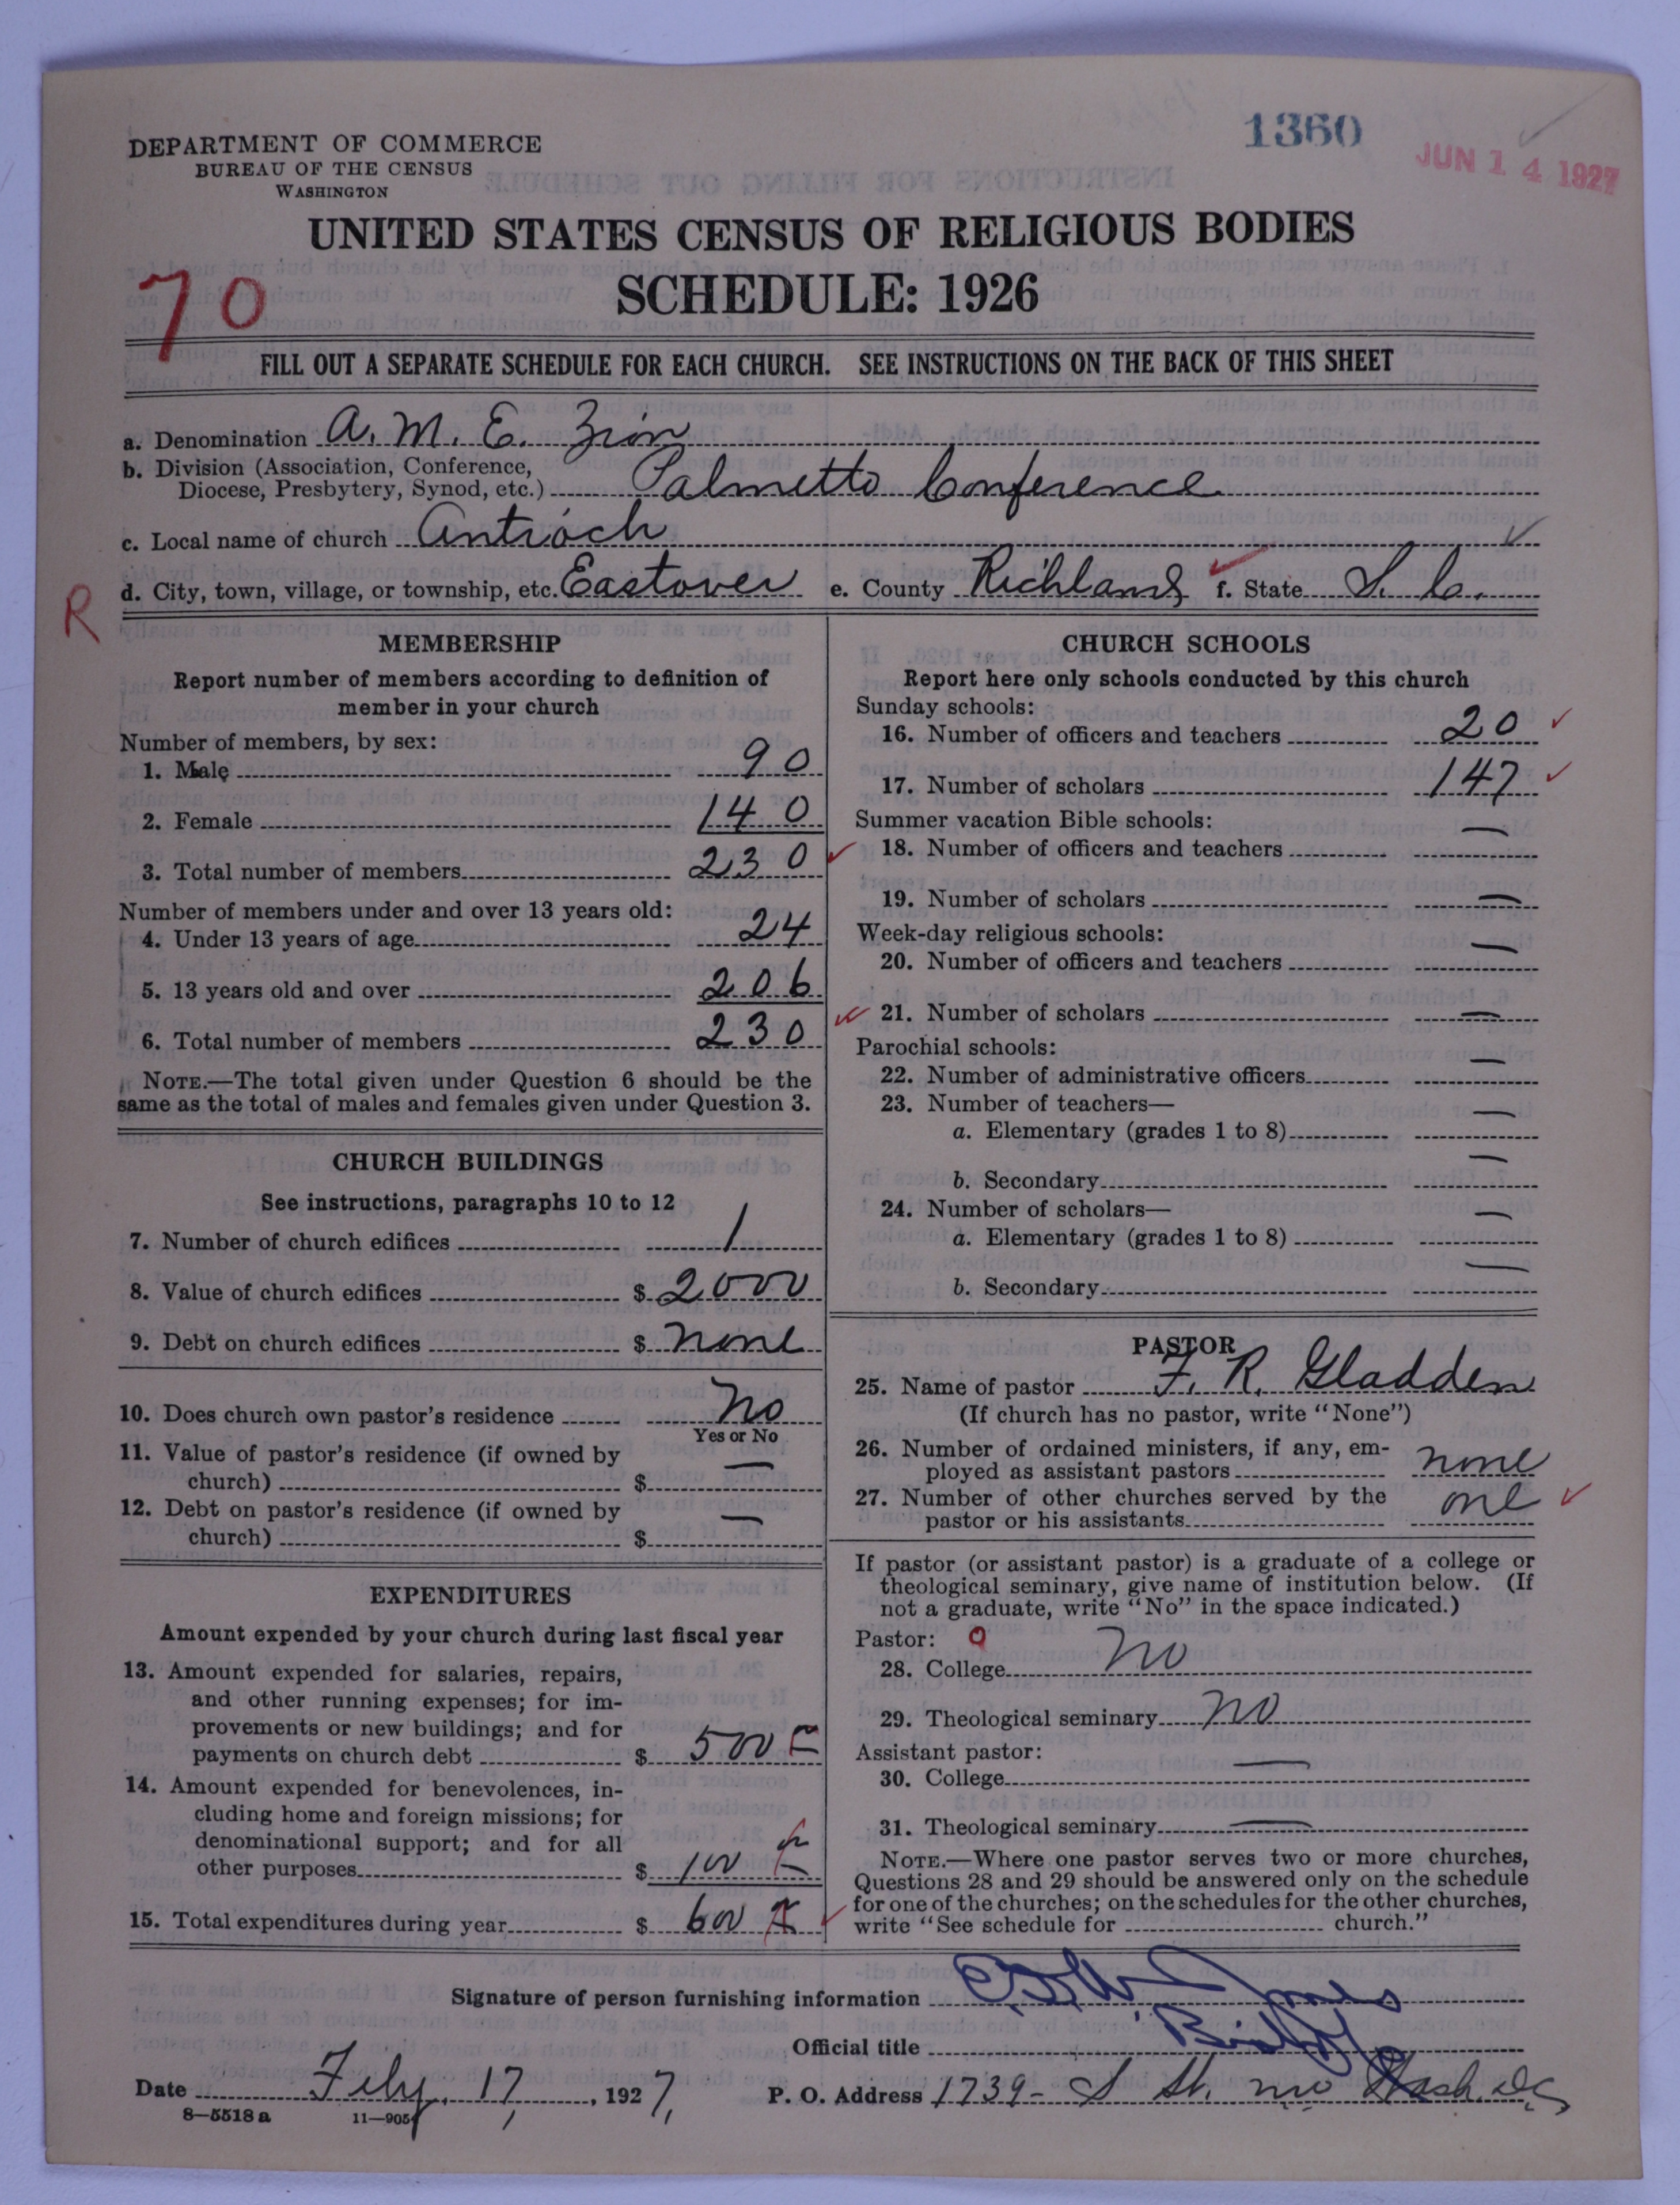 1360
JUN 14 1927
DEPARTMENT OF COMMERCE
BUREAU OF THE CENSUS
WASHINGTON
UNITED STATES CENSUS OF RELIGIOUS BODIES
SCHEDULE: 1926
70
FILL OUT A SEPARATE SCHEDULE FOR EACH CHURCH. SEE INSTRUCTIONS ON THE BACK OF THIS SHEET
a. Denomination A. M. E. Zion
b. Division (Association, Conference,
Diocese, Presbytery, Synod, etc.) Palmetto Conference
c. Local name of church Antioch
d. City, town, village, or township, etc. Eastover e. County Richland f. State S. C.
R
MEMBERSHIP
Report number of members according to definition of
member in your church
Number of members, by sex:
1. Male 90
2. Female 140
3. Total number of members 230
Number of members under and over 13 years old:
4. Under 13 years of age 24
5. 13 years old and over 206
6. Total number of members 230
NOTE.—The total given under Question 6 should be the
same as the total of males and females given under Question 3.
CHURCH BUILDINGS
See instructions, paragraphs 10 to 12
7. Number of church edifices 1
8. Value of church edifices $ 2000
9. Debt on church edifices $ none
10. Does church own pastor's residence No
Yes or No
11. Value of pastor's residence (if owned by
church) $ —
12. Debt on pastor's residence (if owned by
church) $ —
EXPENDITURES
Amount expended by your church during last fiscal year
13. Amount expended for salaries, repairs,
and other running expenses; for im-
provements or new buildings; and for
payments on church debt $ 500
14. Amount expended for benevolences, in-
cluding home and foreign missions; for
denominational support; and for all
other purposes $ 100
15. Total expenditures during year $ 600
CHURCH SCHOOLS
Report here only schools conducted by this church
Sunday schools:
16. Number of officers and teachers 20
17. Number of scholars 147
Summer vacation Bible schools:
18. Number of officers and teachers —
19. Number of scholars —
Week-day religious schools:
20. Number of officers and teachers —
21. Number of scholars —
Parochial schools:
22. Number of administrative officers —
23. Number of teachers—
a. Elementary (grades 1 to 8) —
b. Secondary —
24. Number of scholars—
a. Elementary (grades 1 to 8) —
b. Secondary —
PASTOR
25. Name of pastor F. R. Gladden
(If church has no pastor, write "None")
26. Number of ordained ministers, if any, em-
ployed as assistant pastors none
27. Number of other churches served by the
pastor or his assistants one
If pastor (or assistant pastor) is a graduate of a college or
theological seminary, give name of institution below. (If
not a graduate, write "No" in the space indicated.)
Pastor: 0
28. College no
29. Theological seminary no
Assistant pastor:
30. College —
31. Theological seminary —
NOTE.—Where one pastor serves two or more churches,
Questions 28 and 29 should be answered only on the schedule
for one of the churches; on the schedules for the other churches,
write "See schedule for church."
Signature of person furnishing information Jones
Official title Bishop
Date Feby. 17, 1927, P. O. Address 1739- S St. nw Wash. DC
8—5518 a 11—9054